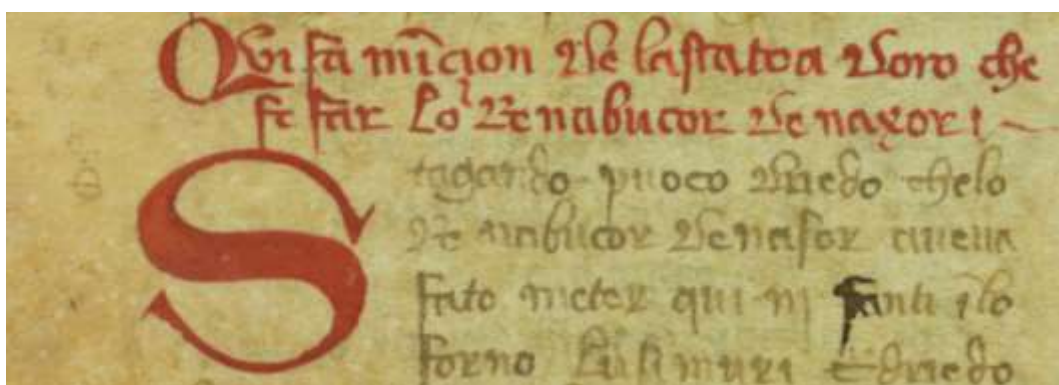 Qui fa mẽcion de la statoa doro che
fe far lo re nabucor de naxor
Stagando puoco driedo chelo
re nabucor de nasor aueua
fato meter qui fanti ĩlo
forno driedo